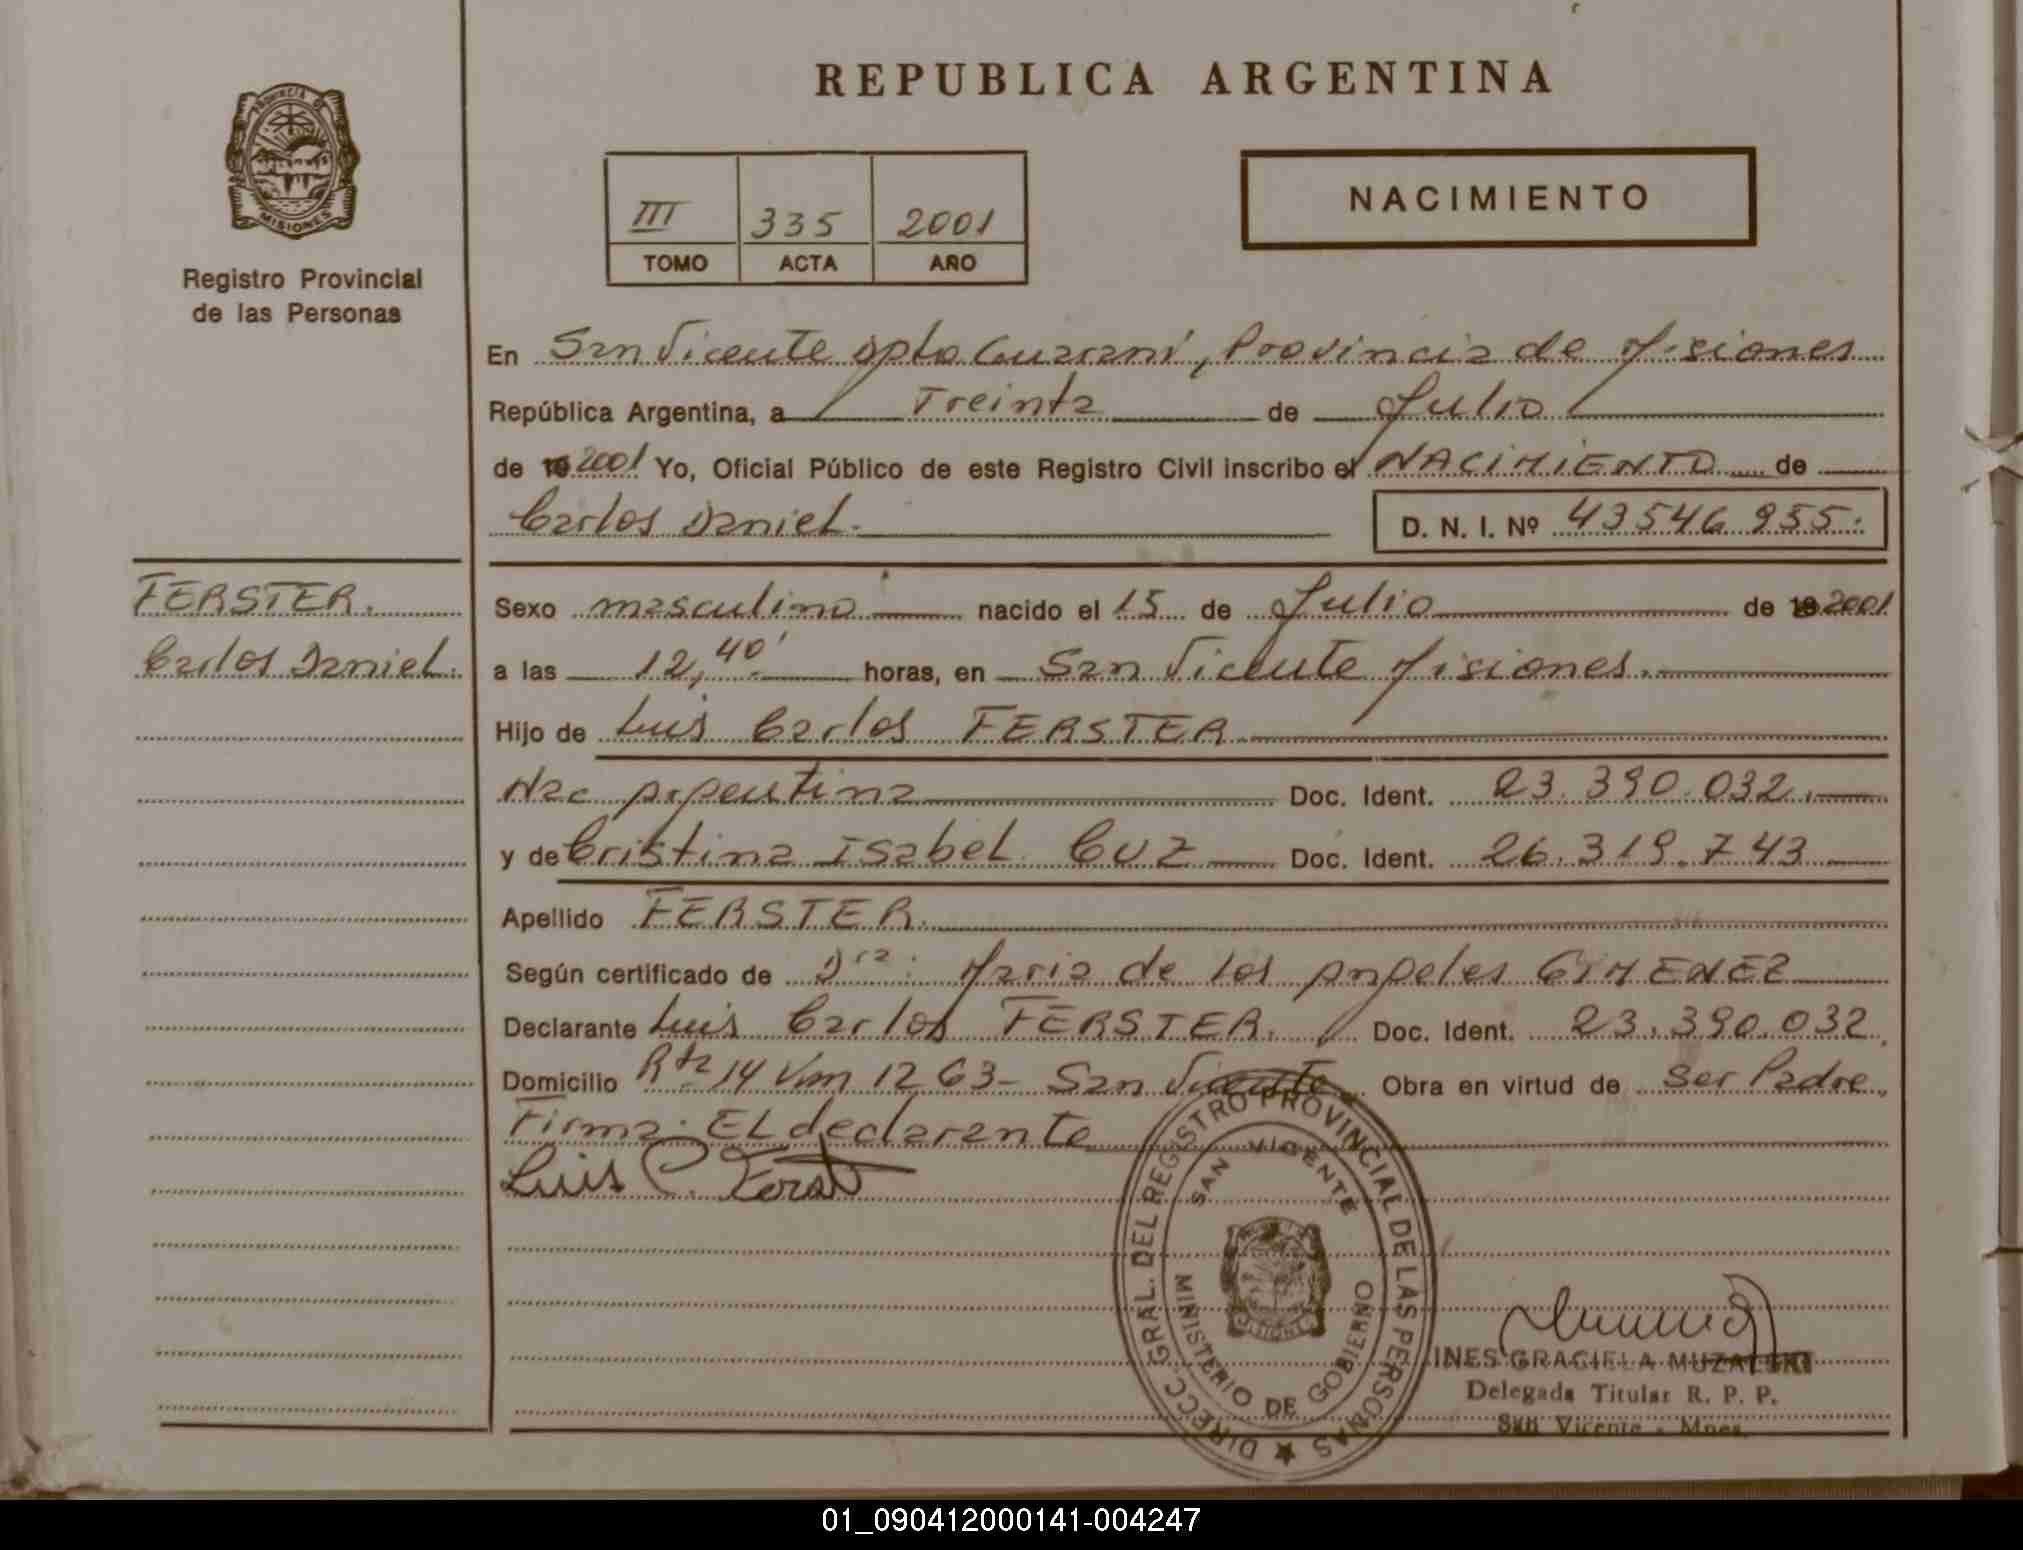 REPUBLICA ARGENTINA
PROVINCIA DE
MISIONES
Registro Provincial
de las Personas
III 335 2001
TOMO ACTA AÑO
NACIMIENTO
En San Vicente Dpto Guaraní, Provincia de Misiones
República Argentina, a Treinta de Julio
de 19 2001 Yo, Oficial Público de este Registro Civil inscribo el NACIMIENTO de
Carlos Daniel. D. N. I. Nº 43546 955.
FERSTER.
Carlos Daniel.
Sexo masculino nacido el 15 de Julio de 19 2001
a las 12,40' horas, en San Vicente Misiones.
Hijo de Luis Carlos FERSTER
Nac Argentina Doc. Ident. 23.390.032.
y de Cristina Isabel CUZ Doc. Ident. 26.319.743
Apellido FERSTER.
Según certificado de Dra: Maria de Los Angeles GIMENEZ
Declarante Luis Carlos FERSTER. Doc. Ident. 23.390.032.
Domicilio Rta 14 Km 1263- San Vicente. Obra en virtud de Ser Padre.
Firma: EL declarante
Luis C. Ferst
DIRECC. GRAL. DEL REGISTRO PROVINCIAL DE LAS PERSONAS
SAN VICENTE
MINISTERIO DE GOBIERNO
INES GRACIELA MUZALSKI
Delegada Titular R. P. P.
San Vicente - Mnes.
01_090412000141-004247